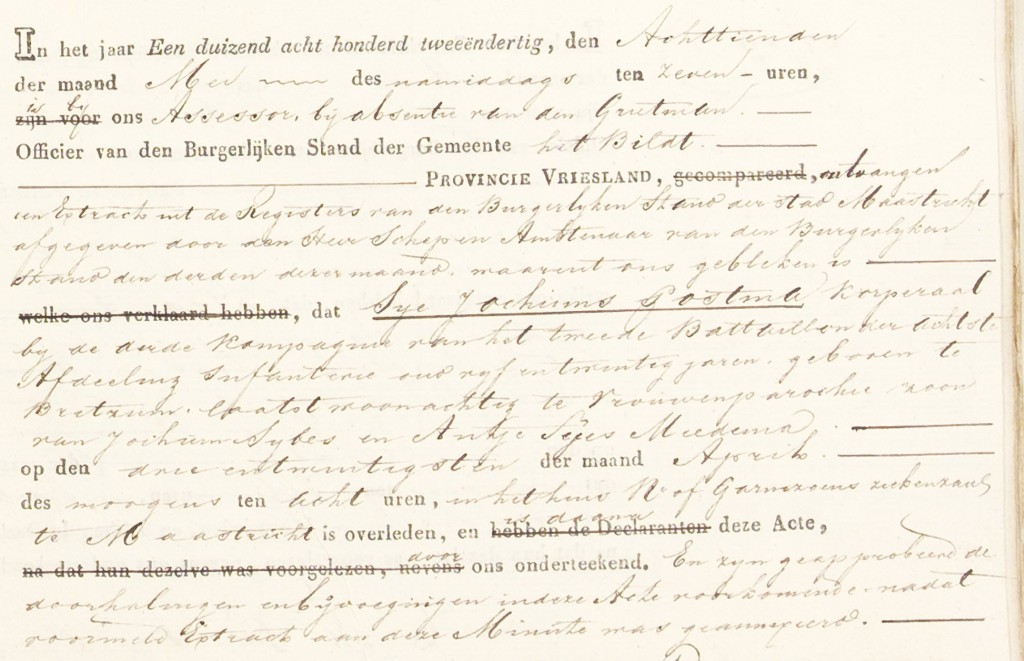 In het jaar Een duizend acht honderd tweeëndertig, den Achttienden
der maand Mei des namiddags ten zeven uren,
is by
zijn voor ons Assessor, bij absentie van den Grietman
Officier van den Burgerlijken Stand der Gemeente het Bildt.
PROVINCIE VRIESLAND, gecompareerd, ontvangen
een Extract uit de Registers van den Burgerlyken Stand der stad Maastricht
afgegeven door den Heer Schepen Ambtenaar van den Burgerlyken
Stand den derden dezer maand. waaruit ons gebleken is
welke ons verklaard hebben, dat Sye Jochums Postma Korperaal
by de derde Kompagnie van het tweede Battaillon der Achtste
Afdeeling Infanterie oud vyf en twintig jaren. geboren te
Britzum. laatst woonachtig te Vrouwenparochie zoon
van Jochum Sybes en Antje Syes Miedema
op den drie en twintigsten der maand April.
des morgens ten acht uren, in het huis No of Garnizoens ziekenzaal
te Maastricht is overleden, en hebben de Declaranten deze Acte,
is daarna
na dat hun dezelve was voorgelezen, nevens ons onderteekend. En zyn geapprobeerd de
door
doorhalingen en bijvoegingen in deze Acte voorkomende. nadat
voormeld Extract aan deze Minute was geannexeerd.